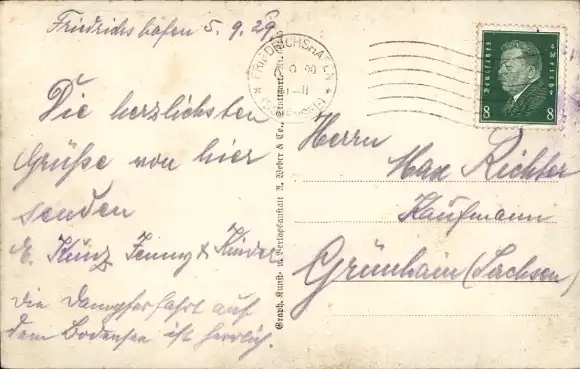 Friedrichshafen 5.9.29.
Die herzlichsten
Grüße von hier
senden
E. Kunz Jenny & Kinder
Die Dampferfahrt auf
dem Bodensee ist herrlich.
FRIEDRICHSHAFEN
Graph. Kunst- u. Verlagsanstalt A. Weber & Co., Stuttgart
Deutsches Reich
8 8
Herrn
Max Richter
Kaufmann
Grünhain (Sachsen)